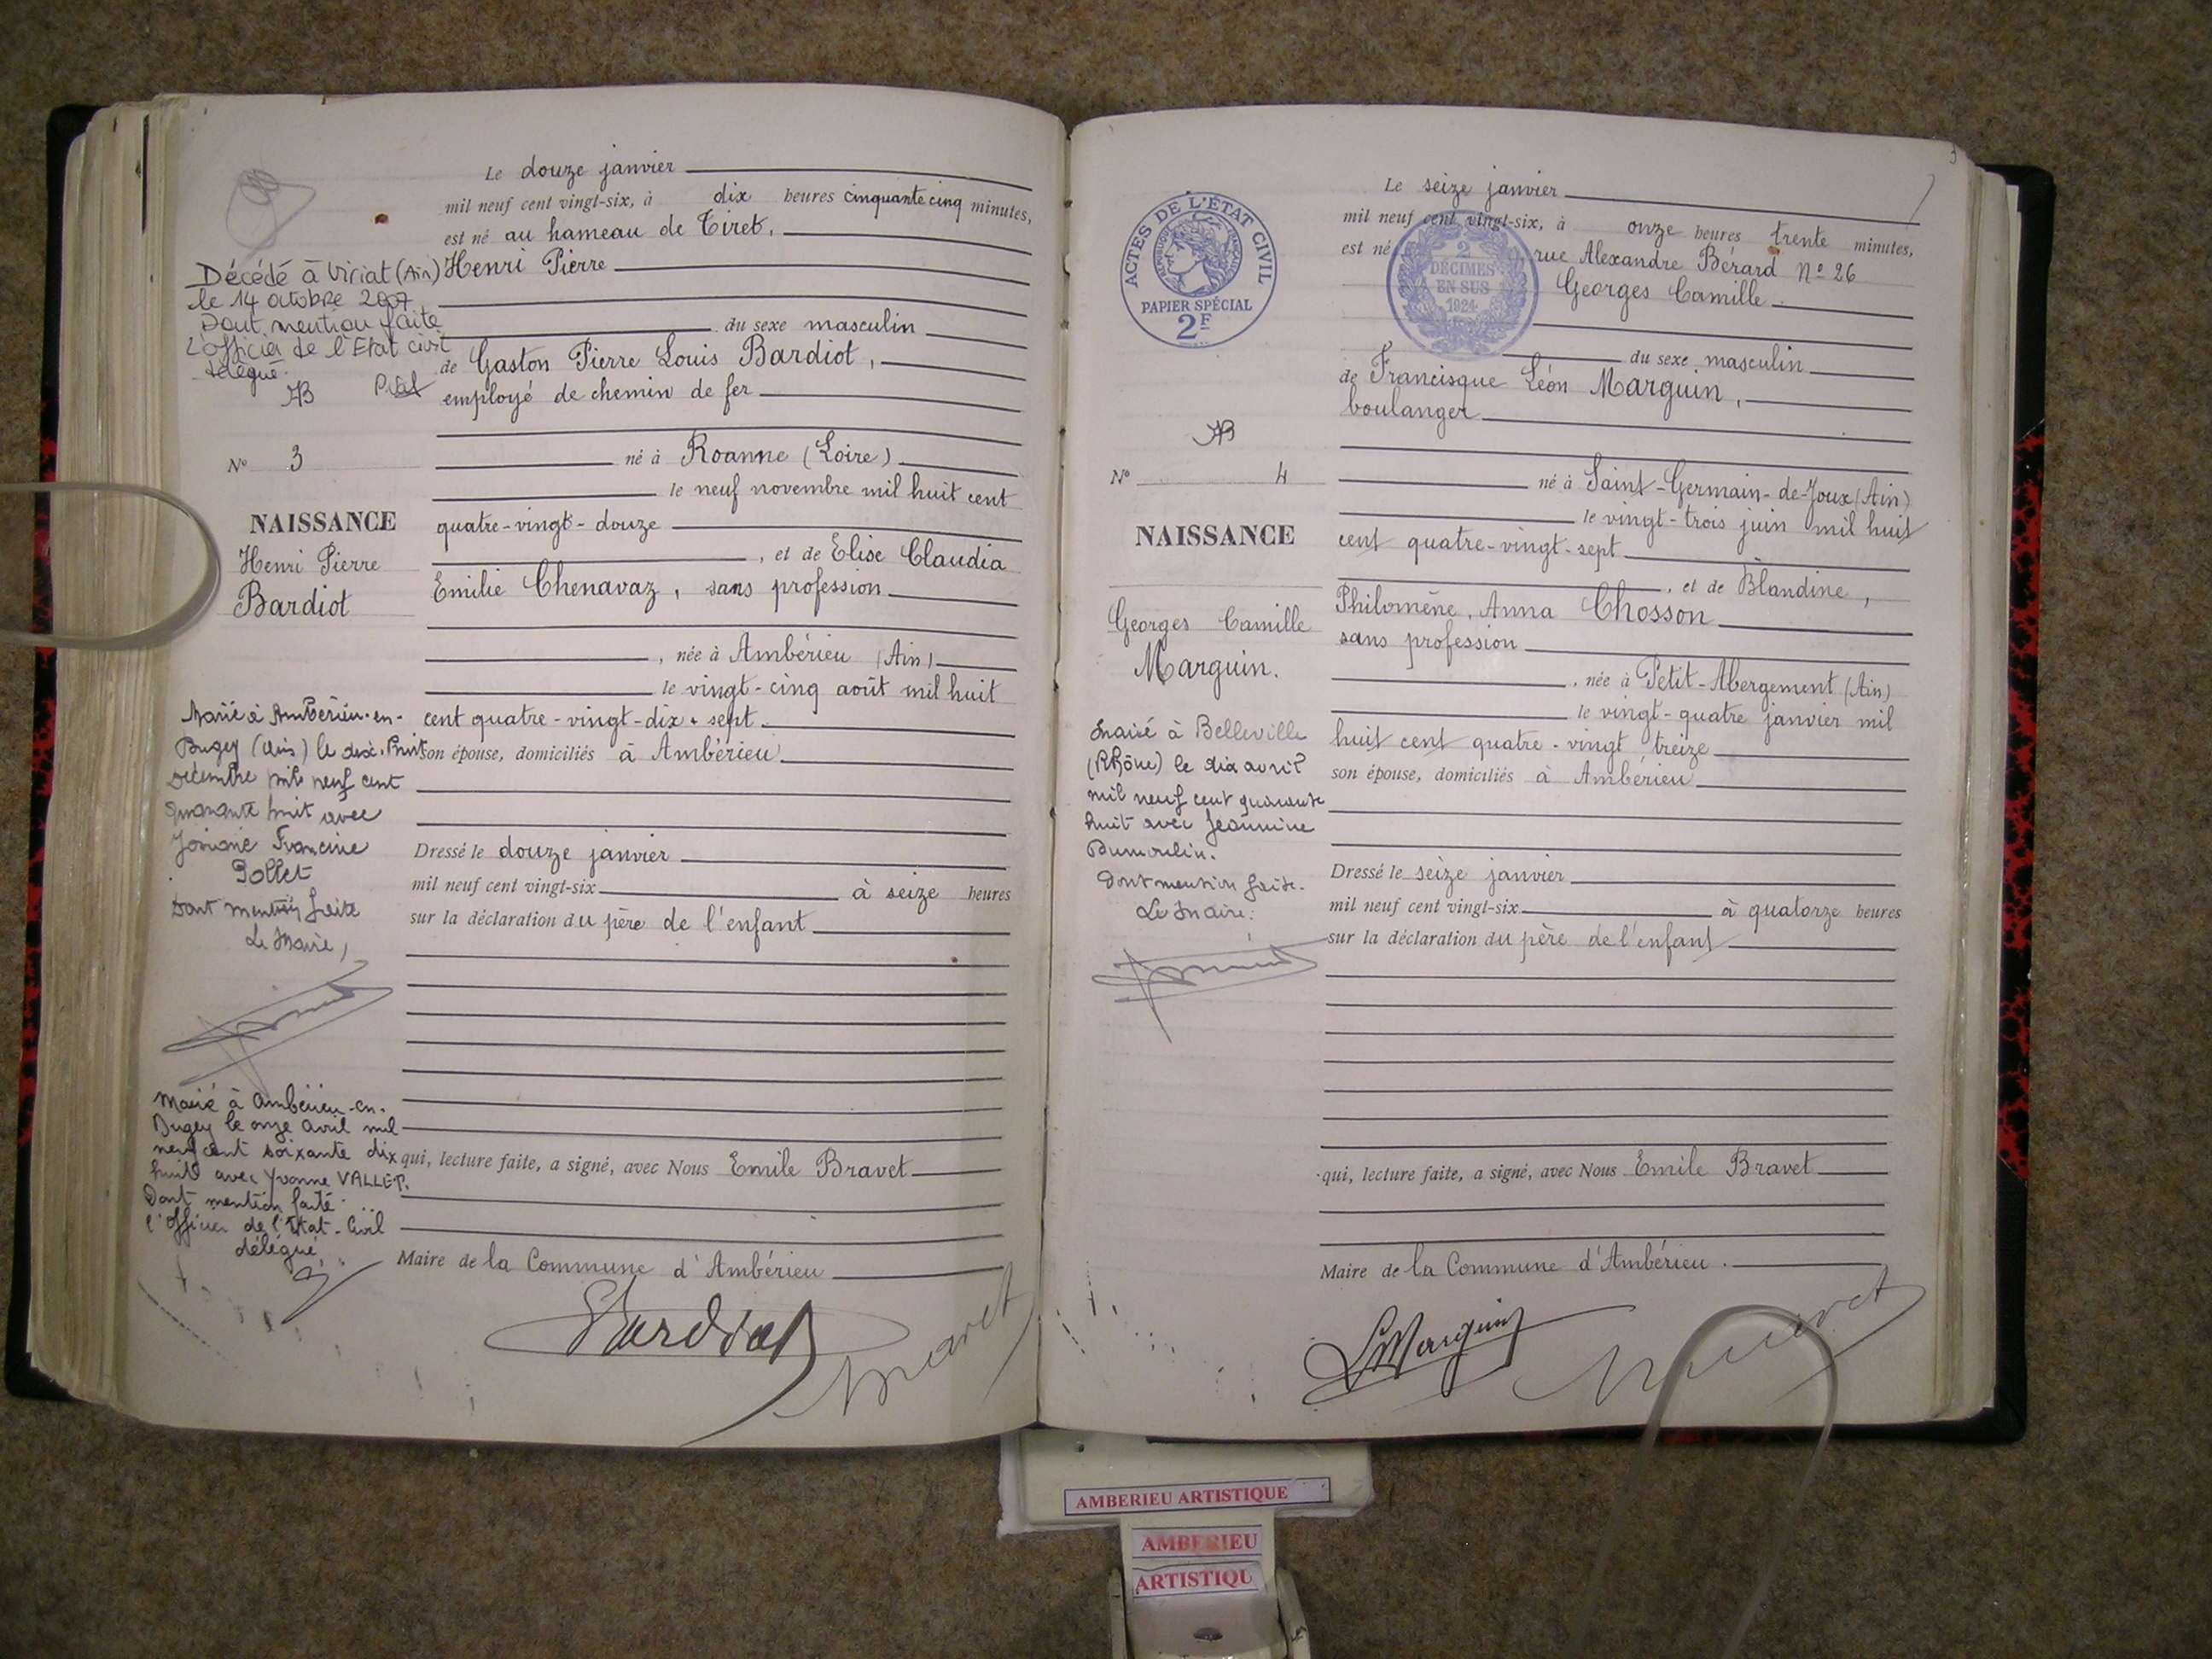 Le douze janvier
mil neuf cent vingt-six, à dix heures cinquante cinq minutes,
est né au hameau de Tiret,
Henri Pierre
du sexe masculin
de Gaston Pierre Louis Bardiot,
employé de chemin de fer
né à Roanne (Loire)
le neuf novembre mil huit cent
quatre-vingt-douze
, et de Elise Claudia
Emilie Chenavaz, sans profession
, née à Ambérieu (Ain)
le vingt-cinq août mil huit
cent quatre-vingt-dix-sept
son épouse, domiciliés à Ambérieu
Dressé le douze janvier
mil neuf cent vingt-six à seize heures
sur la déclaration du père de l'enfant
qui, lecture faite, a signé, avec Nous Emile Bravet
Maire de la Commune d'Ambérieu
Décédé à Viriat (Ain)
le 14 octobre 2007
Dont mention faite
L'officier de l'Etat civil
délégué.
AB
N° 3
NAISSANCE
Henri Pierre
Bardiot
Marié à Ambérieu-en-
Bugey (Ain) le dix-huit
décembre mil neuf cent
quarante huit avec
Josiane Francine
Pollet
Dont mention faite
Le Maire,
Marié à Ambérieu-en-
Bugey le onze avril mil
neuf cent soixante dix
huit avec Yvonne VALLET.
Dont mention faite
l'Officier de l'Etat-Civil
délégué,
Bardiot
Bravet
Le seize janvier
mil neuf cent vingt-six, à onze heures trente minutes,
est né rue Alexandre Bérard N° 26
Georges Camille
du sexe masculin
de Francisque Léon Marguin,
boulanger
né à Saint-Germain-de-Joux (Ain)
le vingt-trois juin mil huit
cent quatre-vingt-sept
, et de Blandine,
Philomène, Anna Chosson
sans profession
, née à Petit-Abergement (Ain)
le vingt-quatre janvier mil
huit cent quatre-vingt treize
son épouse, domiciliés à Ambérieu
Dressé le seize janvier
mil neuf cent vingt-six à quatorze heures
sur la déclaration du père de l'enfant
qui, lecture faite, a signé, avec Nous Emile Bravet
Maire de la Commune d'Ambérieu.
ACTES DE L'ÉTAT CIVIL
RÉPUBLIQUE FRANÇAISE
PAPIER SPÉCIAL
2F
2
DÉCIMES
EN SUS
1924
AB
N° 4
NAISSANCE
Georges Camille
Marguin.
Marié à Belleville
(Rhône) le dix avril
mil neuf cent quarante
huit avec Jeannine
Dumoulin.
Dont mention faite.
Le Maire:
LMarguin
Bravet
AMBERIEU ARTISTIQUE
AMBERIEU
ARTISTIQU